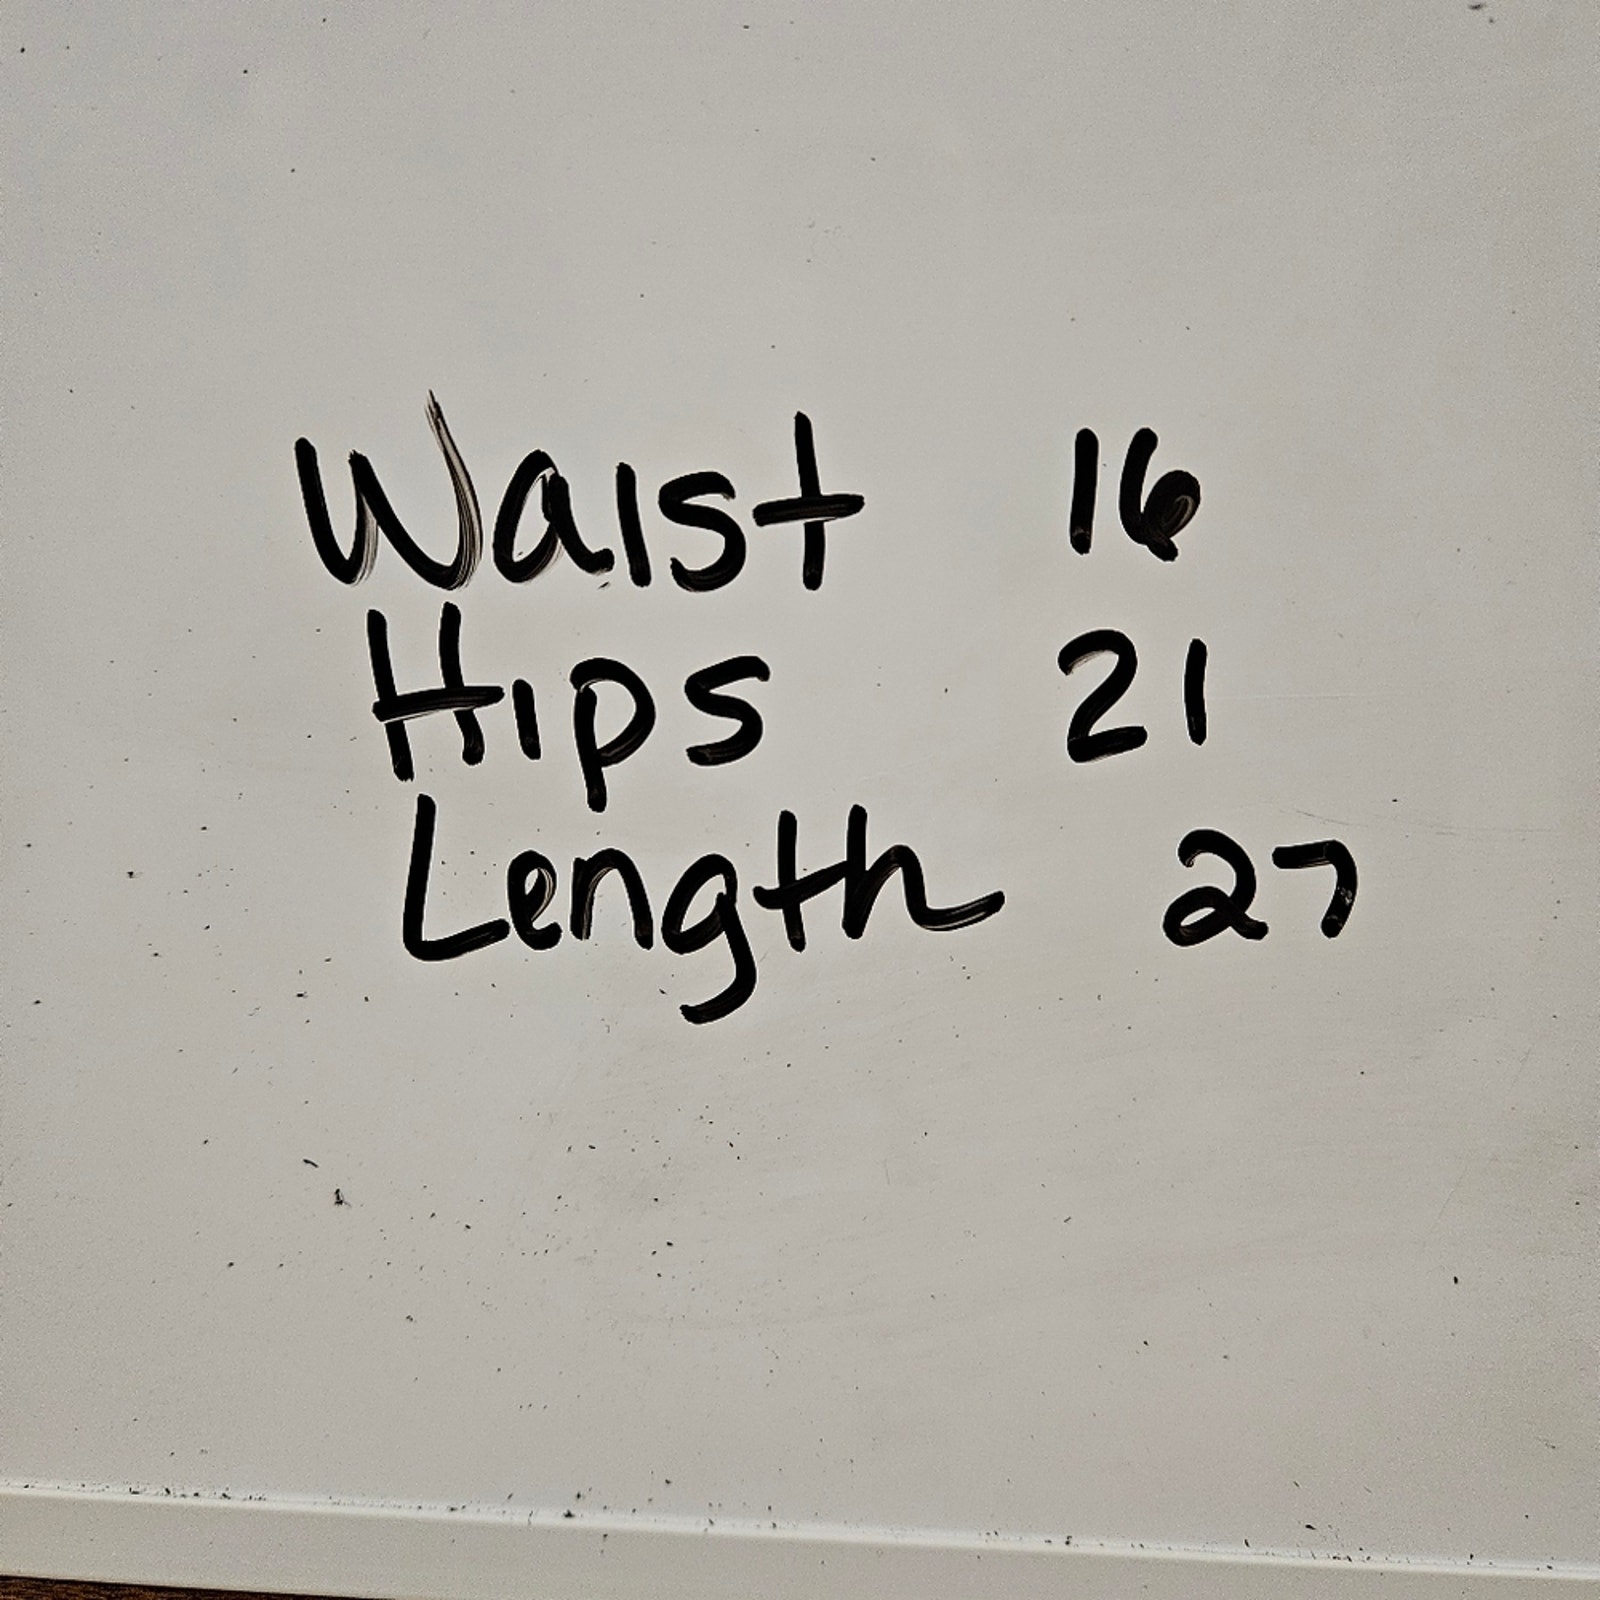 Waist 16
Hips 21
Length 27